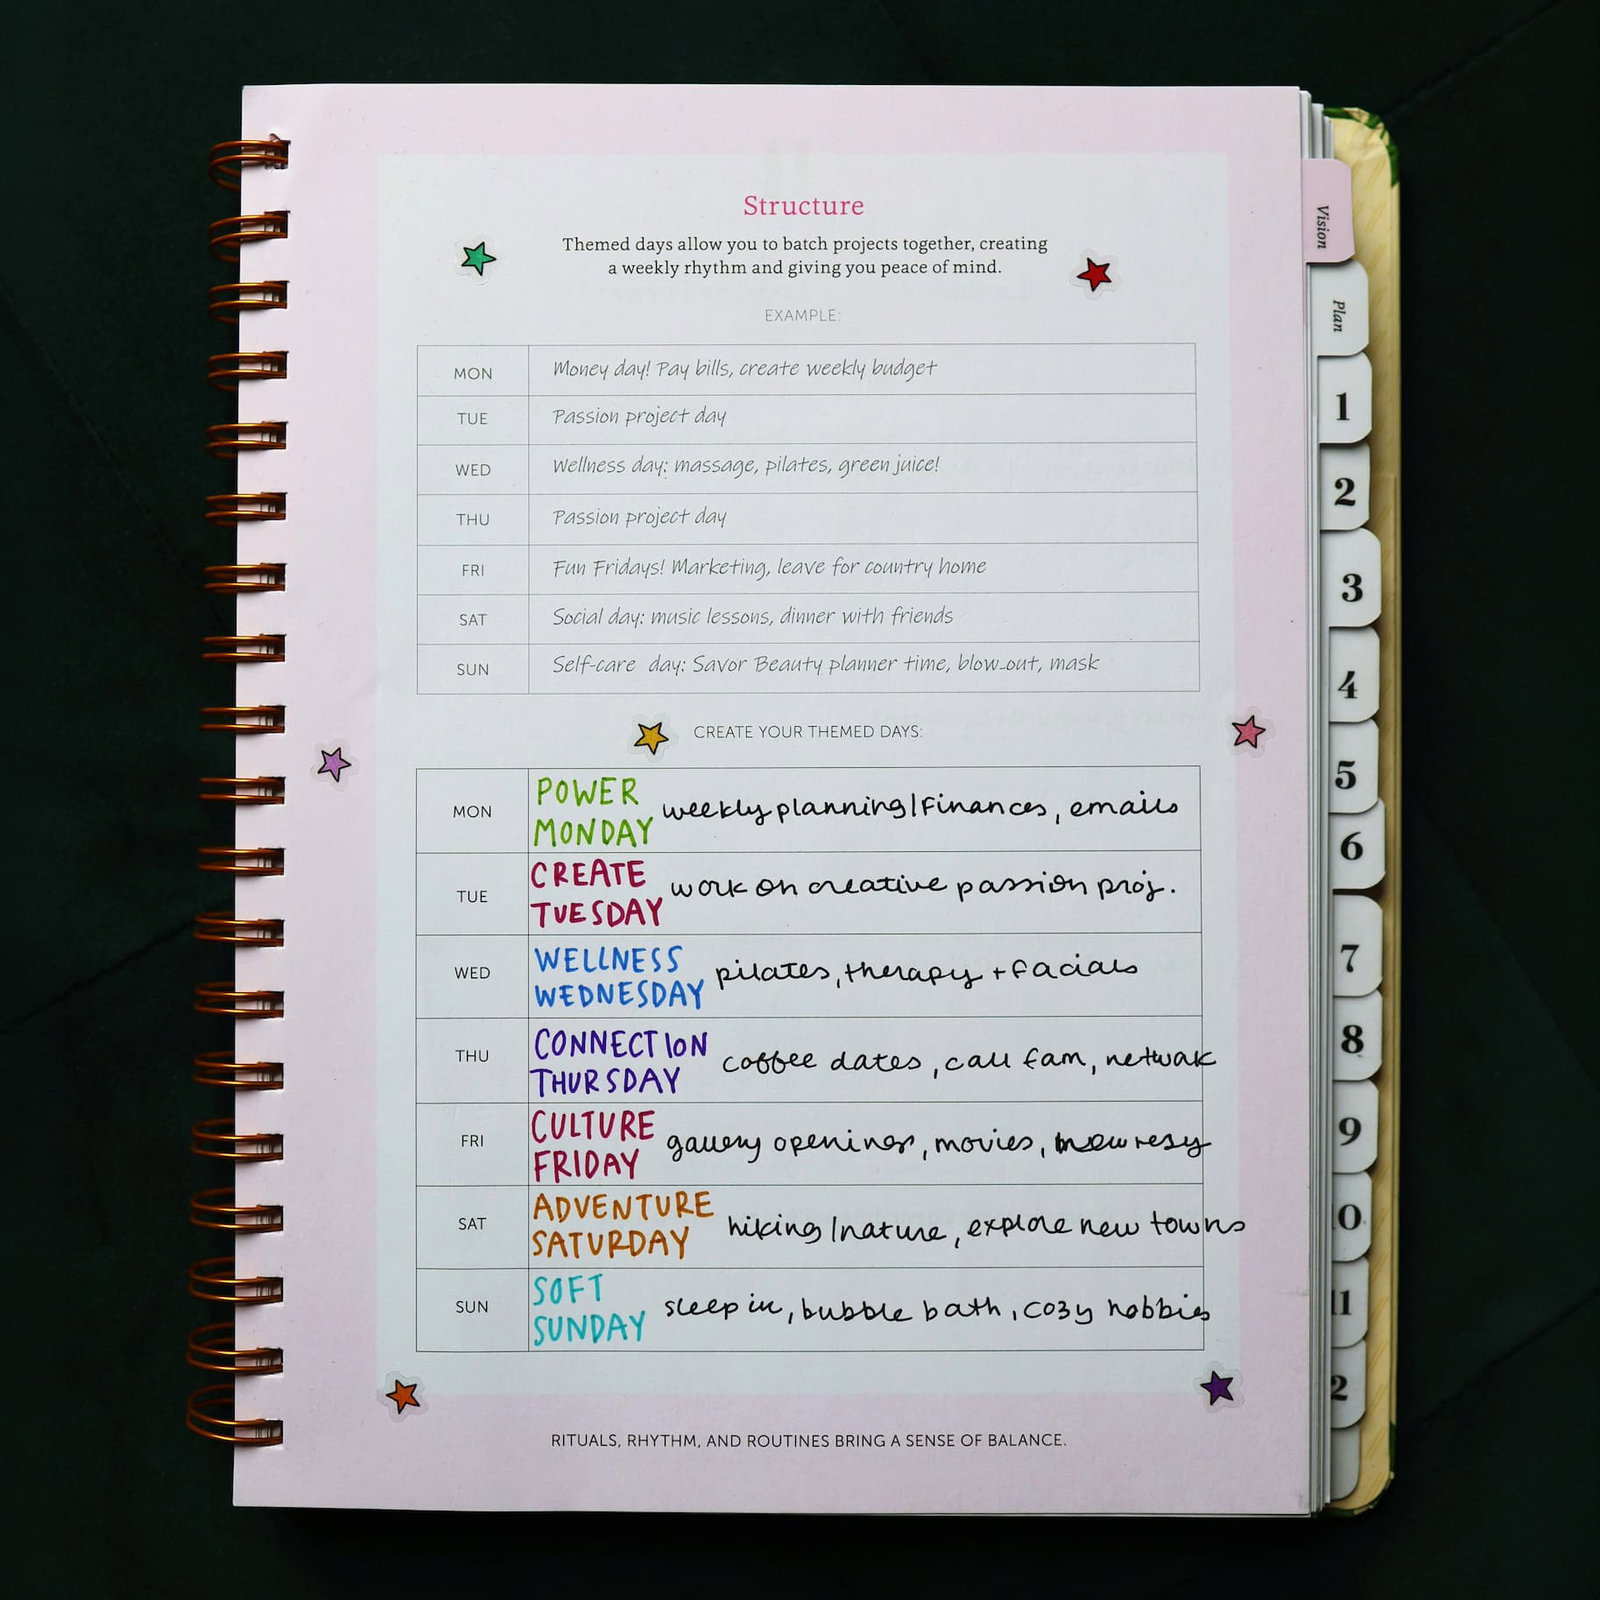 Structure
Themed days allow you to batch projects together, creating
a weekly rhythm and giving you peace of mind.
EXAMPLE:
MON Money day! Pay bills, create weekly budget
TUE Passion project day
WED Wellness day: massage, pilates, green juice!
THU Passion project day
FRI Fun Fridays! Marketing, leave for country home
SAT Social day: music lessons, dinner with friends
SUN Self-care day: Savor Beauty planner time, blow-out, mask
CREATE YOUR THEMED DAYS:
MON POWER MONDAY weekly planning/Finances, emails
TUE CREATE TUESDAY work on creative passion proj.
WED WELLNESS WEDNESDAY pilates, therapy + facials
THU CONNECTION THURSDAY coffee dates, call fam, network
FRI CULTURE FRIDAY gallery openings, movies, new resy
SAT ADVENTURE SATURDAY hiking/nature, explore new towns
SUN SOFT SUNDAY sleep in, bubble bath, cozy hobbies
RITUALS, RHYTHM, AND ROUTINES BRING A SENSE OF BALANCE.
Vision
Plan
1
2
3
4
5
6
7
8
9
10
11
2